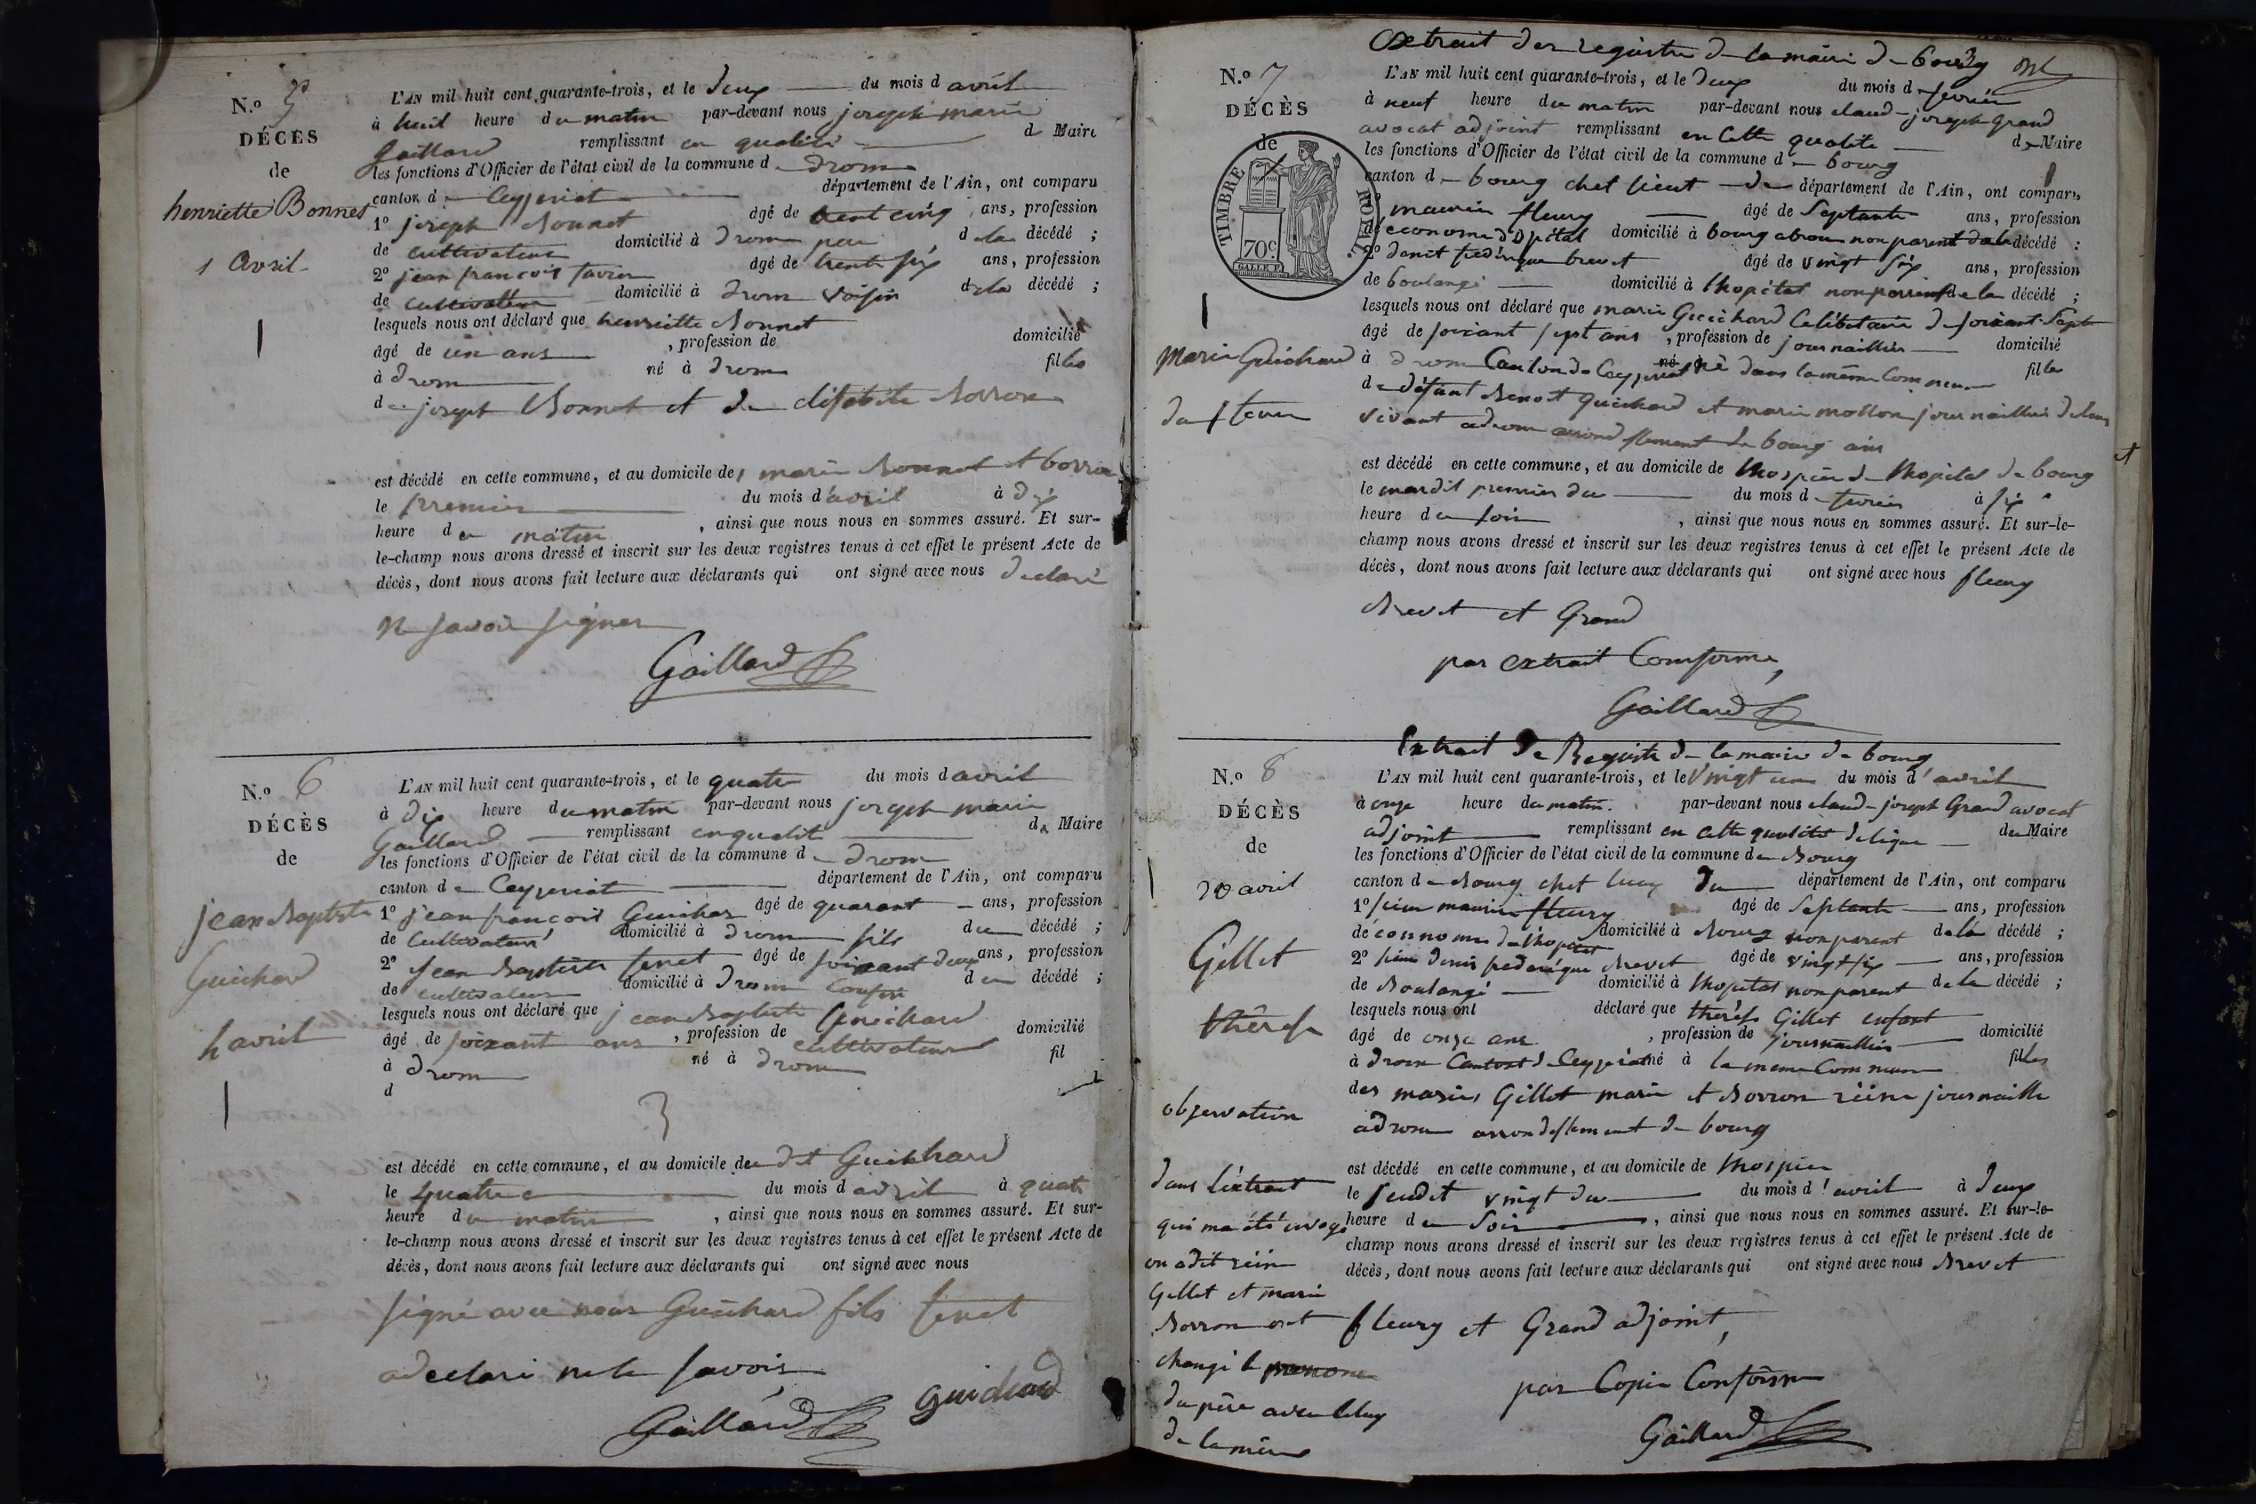 N.º 5
DÉCÈS
de
henriette Bonnet
1 avril
L'AN mil huit cent quarante-trois, et le deux du mois d avril
à huit heure du matin par-devant nous joseph marie
Gaillard remplissant en qualité d Maire
les fonctions d'Officier de l'état civil de la commune d drom
canton d Ceyzeriat département de l'Ain, ont comparu
1º joseph Bonnet âgé de trent cinq ans, profession
de cultivateur domicilié à drom pere de la décédé ;
2º jean françois favier âgé de trent six ans, profession
de cultivateur domicilié à drom voisin de la décédé ;
lesquels nous ont déclaré que henriette Bonnet
âgé de un ans , profession de domicilié
à drom né à drom fille
de joseph Bonnet et de Borron
est décédé en cette commune, et au domicile des marié Bonnet et borron
le premier du mois d'avril à dix
heure du matin , ainsi que nous nous en sommes assuré. Et sur-
le-champ nous avons dressé et inscrit sur les deux registres tenus à cet effet le présent Acte de
décès, dont nous avons fait lecture aux déclarants qui ont signé avec nous declaré
ne savoir signer
Gaillard
N.º 6
DÉCÈS
de
jean Baptiste
Guichard
4 avril
L'AN mil huit cent quarante-trois, et le quatre du mois d avril
à dix heure du matin par-devant nous joseph marie
Gaillard remplissant en qualité de Maire
les fonctions d'Officier de l'état civil de la commune de drom
canton de Ceyzeriat département de l'Ain, ont comparu
1º jean françois Guichar âgé de quarant ans, profession
de cultivateur domicilié à drom fils du décédé ;
2º jean Baptiste fenet âgé de soixant deux ans, profession
de cultivateur domicilié à drom cousin du décédé ;
lesquels nous ont déclaré que jean Baptiste Guichard
âgé de soixant ans , profession de cultivateur domicilié
à drom né à drom fil
d
est décédé en cette commune, et au domicile du dt Guichard
le quatre du mois d avril à quatr
heure du matin , ainsi que nous nous en sommes assuré. Et sur-
le-champ nous avons dressé et inscrit sur les deux registres tenus à cet effet le présent Acte de
décès, dont nous avons fait lecture aux déclarants qui ont signé avec nous
signé avec nous Guichard fils fenet
a declaré ne le savoir
Guichard
Gaillard
Extrait des registre de la mairie de bourg
N.º 7
DÉCÈS
de
TIMBRE ROYAL
70 c.
marie Guichard
du 1 fevrier
L'AN mil huit cent quarante-trois, et le deux du mois de fevrier
à neuf heure du matin par-devant nous claud-joseph Grand
avocat adjoint remplissant en cette qualité de Maire
les fonctions d'Officier de l'état civil de la commune de bourg
canton de bourg chef lieut du département de l'Ain, ont comparu
1º maurice fleury âgé de Septante ans, profession
de econome d'opital domicilié à bourg non parent de la décédé ;
2º denit frederique brevet âgé de vingt six ans, profession
de boulangé domicilié à lhopital non parent de la décédé ;
lesquels nous ont déclaré que marie Guichard Celibataire de soixant Sept
âgé de soixant sept ans , profession de journailliere domicilié
à drom Canton de Ceyzeriat né dans la même Commune fille
de défunt Benoit Guichard et marie mollon journailliers de leur
vivant a drom arrondissement de bourg ain
est décédé en cette commune, et au domicile de lhospice de lhopital de bourg
le mardit premier du du mois de fevrier à six
heure du soir , ainsi que nous nous en sommes assuré. Et sur-le-
champ nous avons dressé et inscrit sur les deux registres tenus à cet effet le présent Acte de
décès, dont nous avons fait lecture aux déclarants qui ont signé avec nous fleury
Brevet et Grand
par extrait Comforme,
Gaillard
Extrait de Registre de la mairie de bourg
N.º 8
DÉCÈS
de
20 avril
Gillet
thérese
observation
dans l'extrait
qui ma été envoyé
on a dit reine
Gillet et marie
Borron ont
changé le prenom
du père avec celuy
de la mère
L'AN mil huit cent quarante-trois, et le vingt un du mois d'avril
à onze heure du matin par-devant nous claud-joseph Grand avocat
adjoint remplissant en cette qualité du Maire
les fonctions d'Officier de l'état civil de la commune de Bourg
canton de Bourg chef du département de l'Ain, ont comparu
1º sieur maurice fleury âgé de Septante ans, profession
de économe de lhopital domicilié à Bourg non parent de la décédé ;
2º sieur denis frederique Brevet âgé de vingt six ans, profession
de Boulangé domicilié à lhopital non parent de la décédé ;
lesquels nous ont déclaré que thérèse Gillet enfant
âgé de onze ans , profession de journaillière domicilié
à drom Canton de Ceyzériat né à la meme Commune fille
des mariés Gillet marie et Borron reine journaille
a drom arrondissement de bourg
est décédé en cette commune, et au domicile de lhospice
le jeudit vingt du du mois d'avril à deux
heure du soir , ainsi que nous nous en sommes assuré. Et sur-le-
champ nous avons dressé et inscrit sur les deux registres tenus à cet effet le présent Acte de
décès, dont nous avons fait lecture aux déclarants qui ont signé avec nous Brevet
fleury et Grand adjoint,
par Copie Conforme
Gaillard